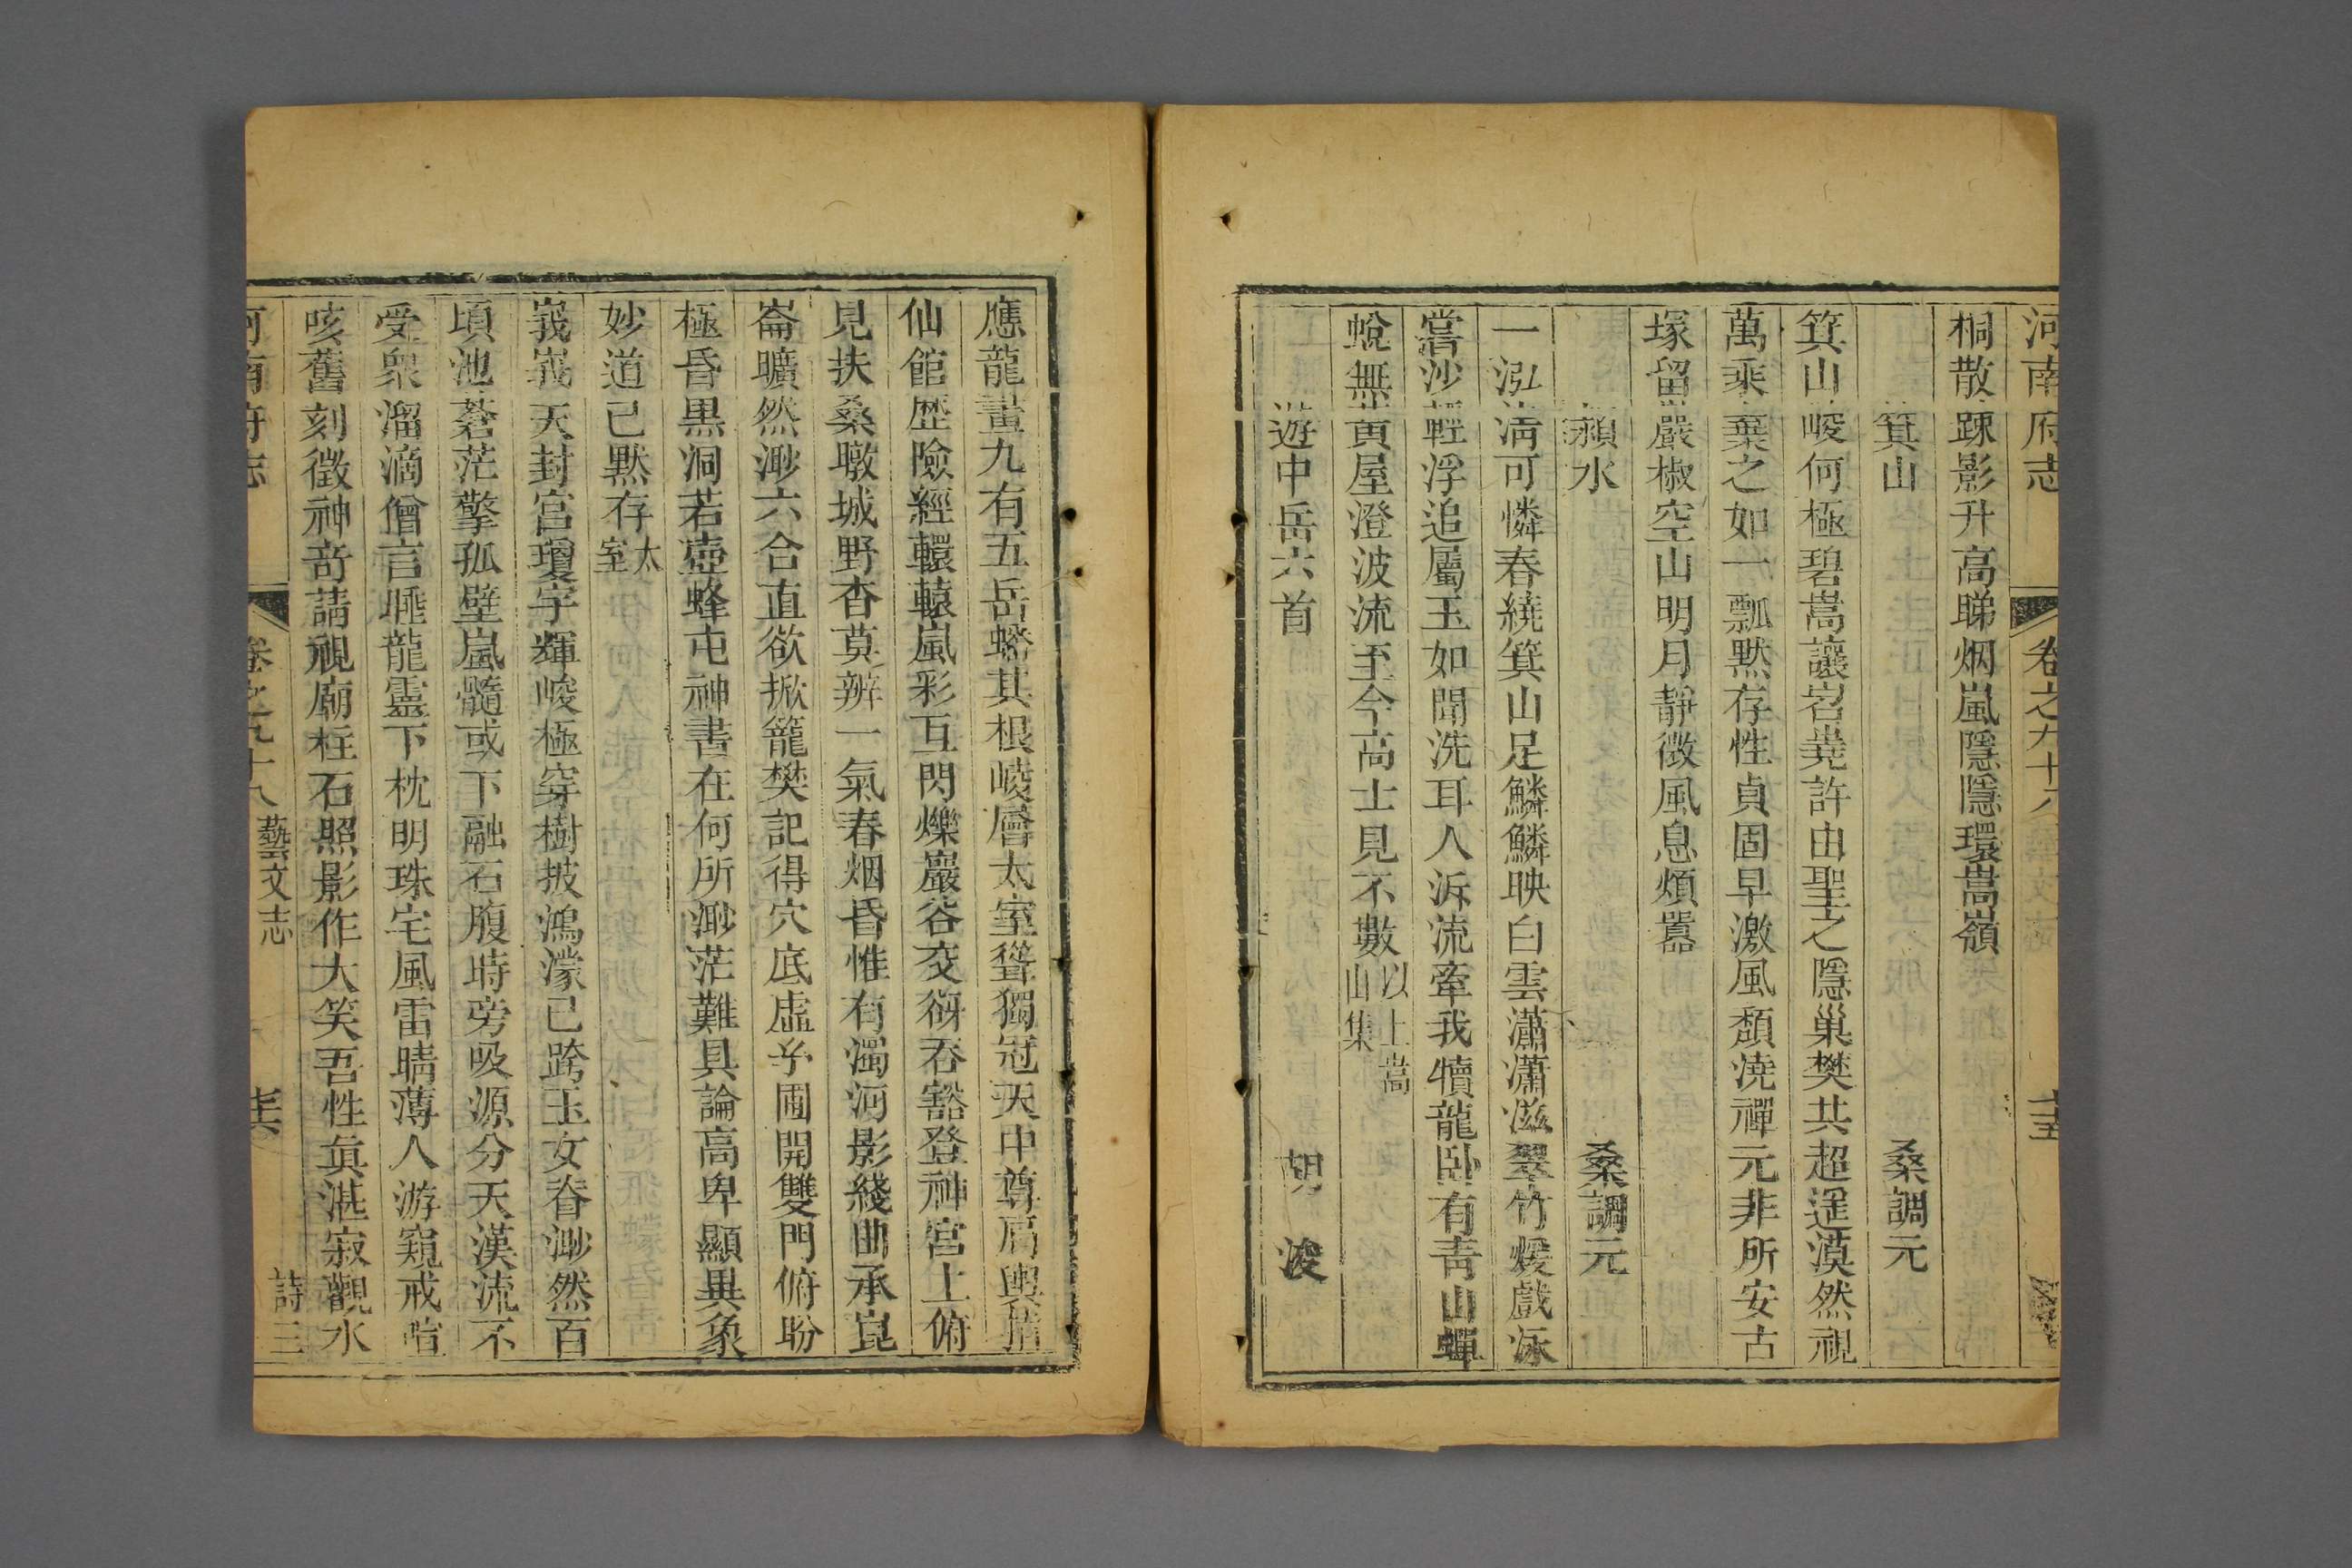 河南府志 卷之九十八
桐散疎影升高睇烟嵐隱隱環嵩嶺
箕山 桑調元
箕山峻何極碧嵩讓岧嶤許由聖之隱巢樊共超遥漠然視
萬乘棄之如一瓢默存性貞固早激風頽澆禪元非所安古
塚留巖椒空山明月靜微風息煩囂
潁水 桑調元
一泓清可憐春繞箕山足鱗鱗映白雲瀟瀟滋翠竹煖戲泳
嘗沙輕浮追屬玉如聞洗耳人泝流牽我犢龍卧有青山蟬
蛻無黄屋澄波流至今高士見不數以上嵩山集
遊中岳六首 胡浚
應龍畫九有五岳蟠其根崚層太室聳獨冠天中尊肩輿
仙館歷險經轘轅嵐彩互閃爍巖谷交谺吞豁登神宮上俯
見扶桑暾城野杳莫辨一氣春烟昏惟有濁河影綫曲承崑
崙曠然渺六合直欲掀籠樊記得穴底虛岈圃開雙門俯盼
極昏黒洞若壺蜂屯神書在何所渺茫難具論高卑顯異象
妙道已默存太室
峩峩天封宫瓊宇輝峻極穿樹披鴻濛已跨玉女脊渺然百
頃池蒼茫擎孤壁嵐髓或下融石腹時旁吸源分天漢流不
受衆溜滴僧言睡龍靈下枕明珠宅風雷晴薄人游窺戒
咳舊刻徵神竒請視廟柱石照影作大笑吾性眞湛寂觀水
河南府志 卷之九十八 藝文志 詩三